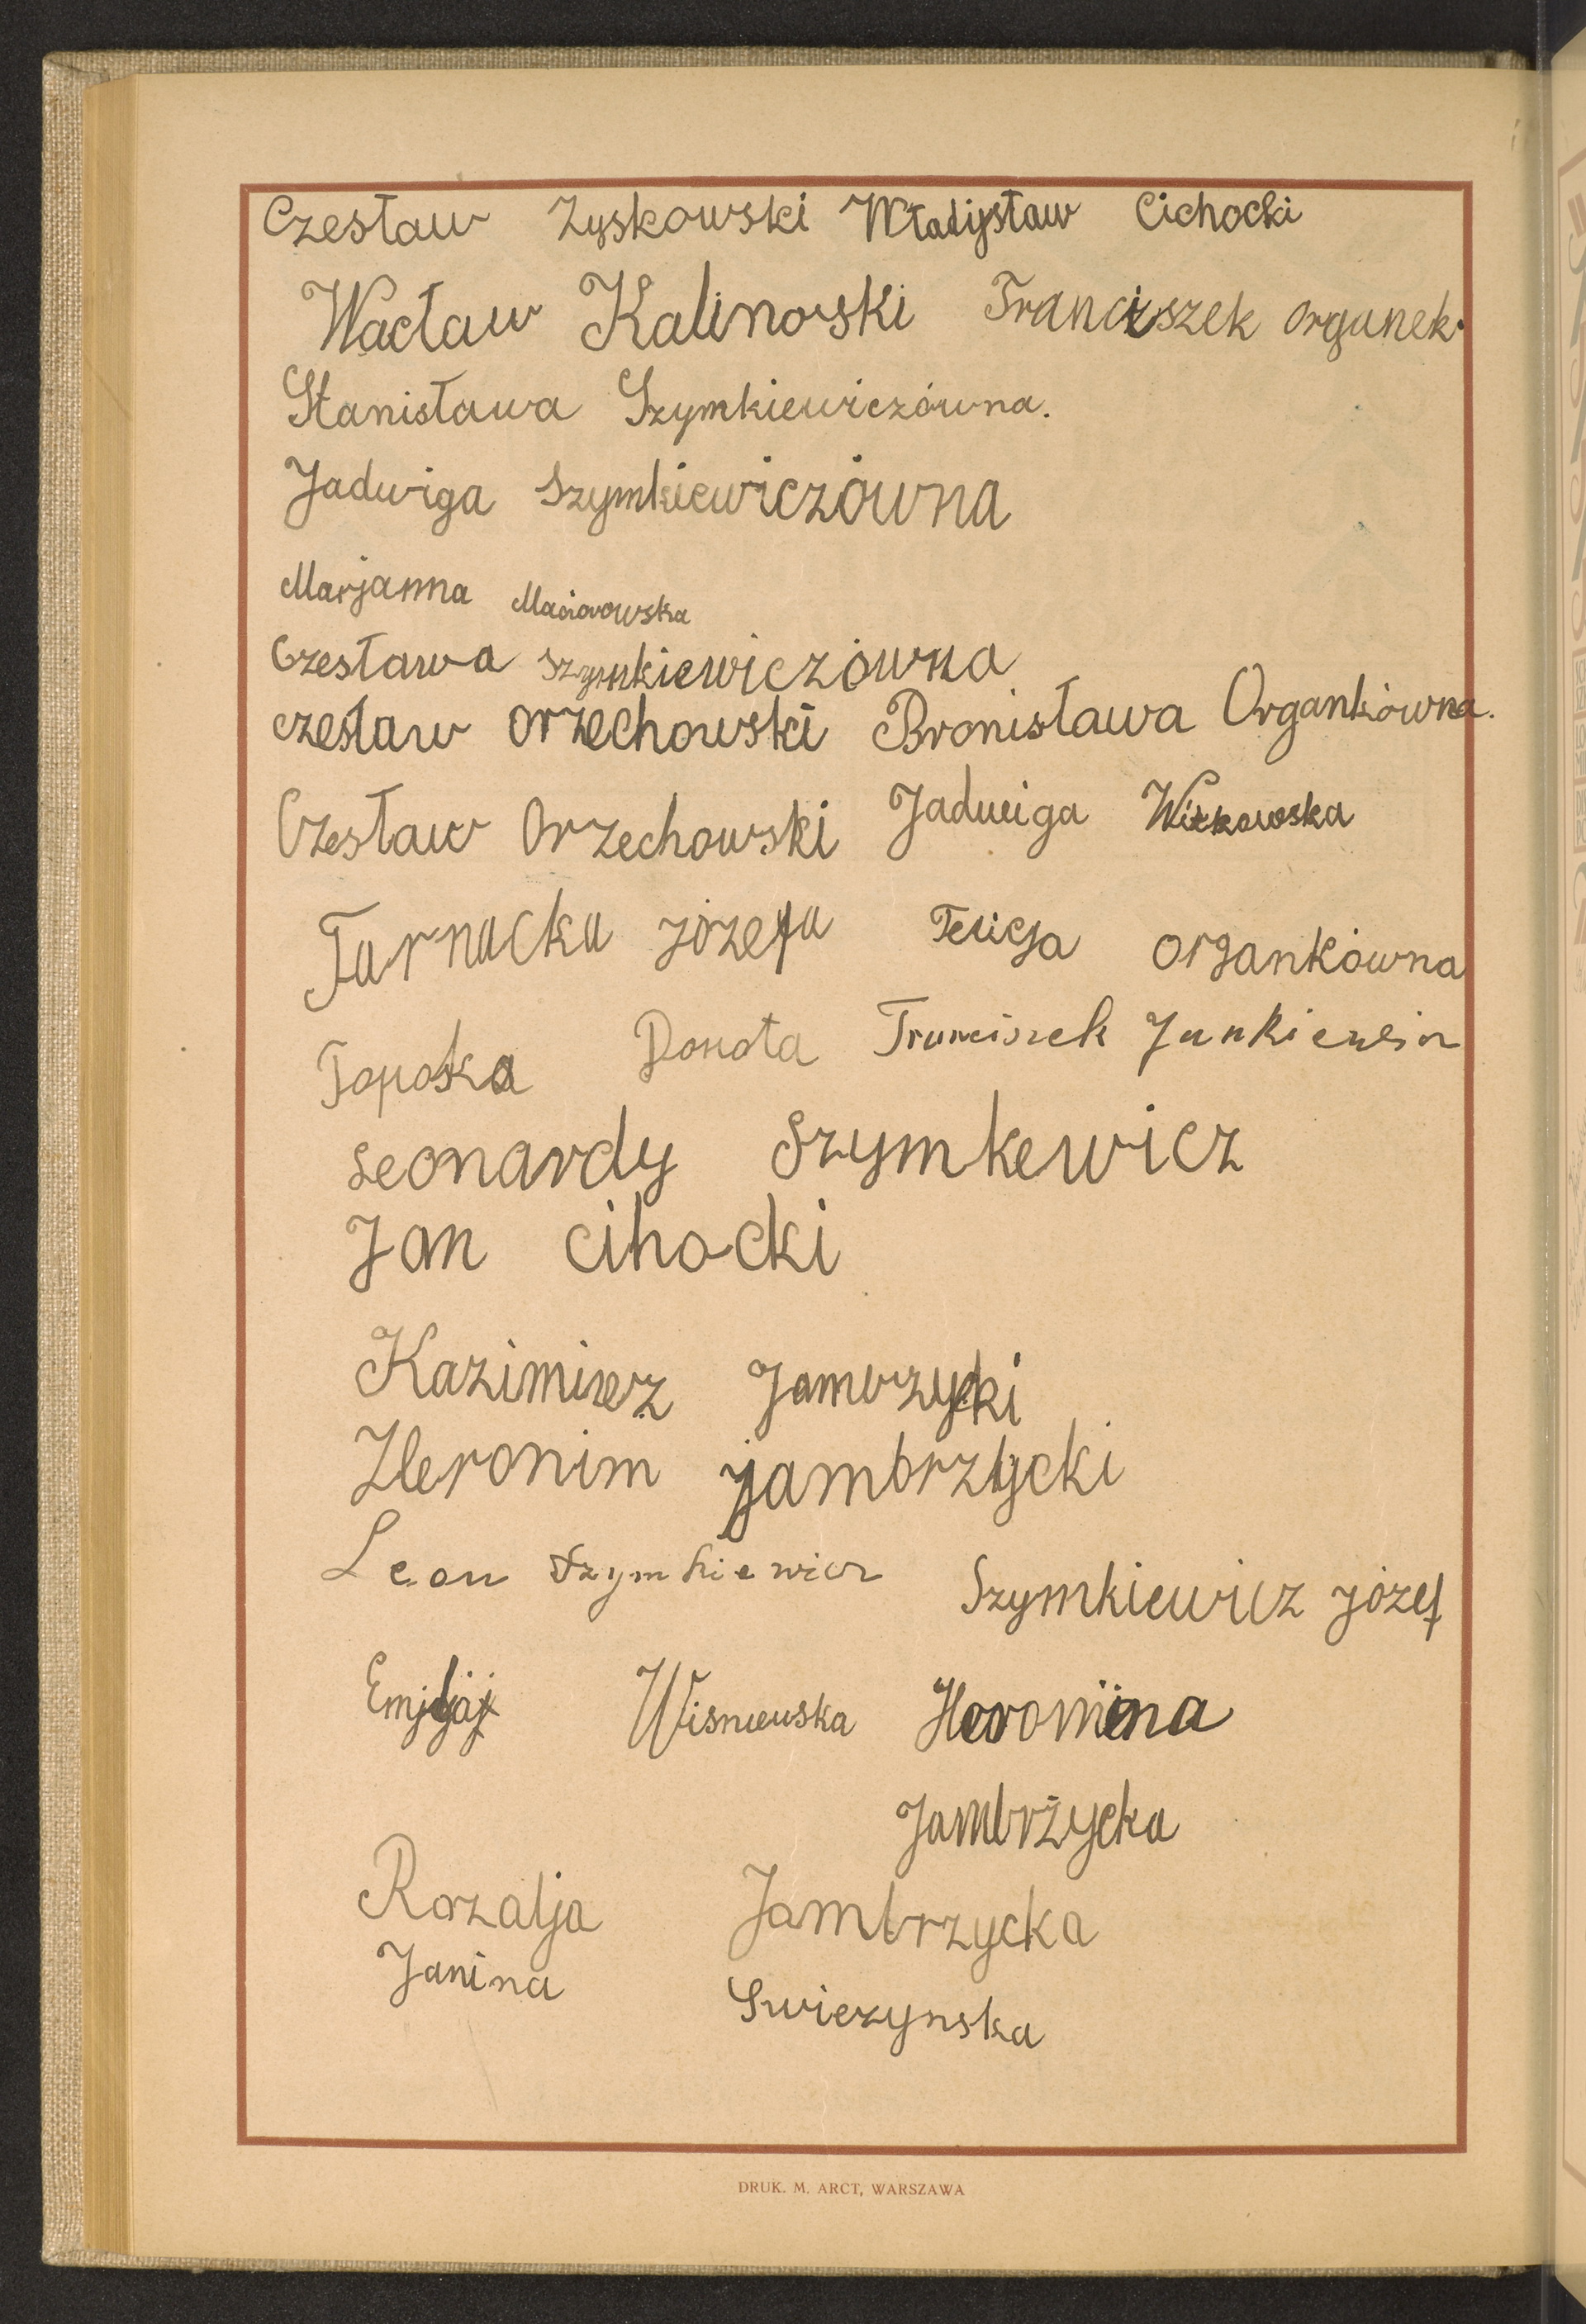 Czesław Zyskowski Władysław Cichocki
Wacław Kalinowski Franciszek Organek
Stanisława Szymkiewiczówna.
Jadwiga Szymkiewiczówna
Marjanna
Czesława Szymkiewiczówna
czesław orzechowski Bronisława Organkówna.
Czesław Orzechowski Jadwiga Witkowska
Tarnacka józefa Felicja organkówna
Donota Franciszek Jankiewicz
Leonardy Szymkewicz
Jan cihocki
Kazimierz Jambrzycki
Heronim jambrzycki
Leon Szymkiewicz Szymkiewicz józef
Wisniewska Heronima
Jambrzycka
Rozalja Jambrzycka
Janina Swierzynska
DRUK. M. ARCT, WARSZAWA